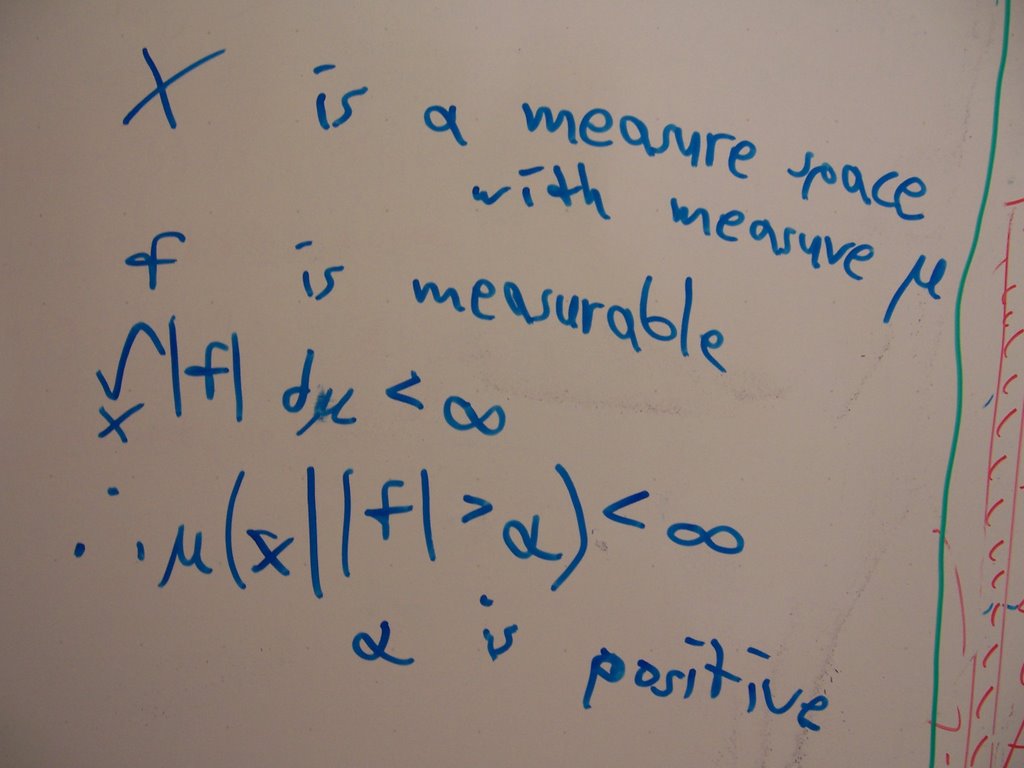 X is a measure space
with measure μ
f is measurable
∫_X |f| dμ < ∞
∴ μ(x | |f| > α) < ∞
α is positive